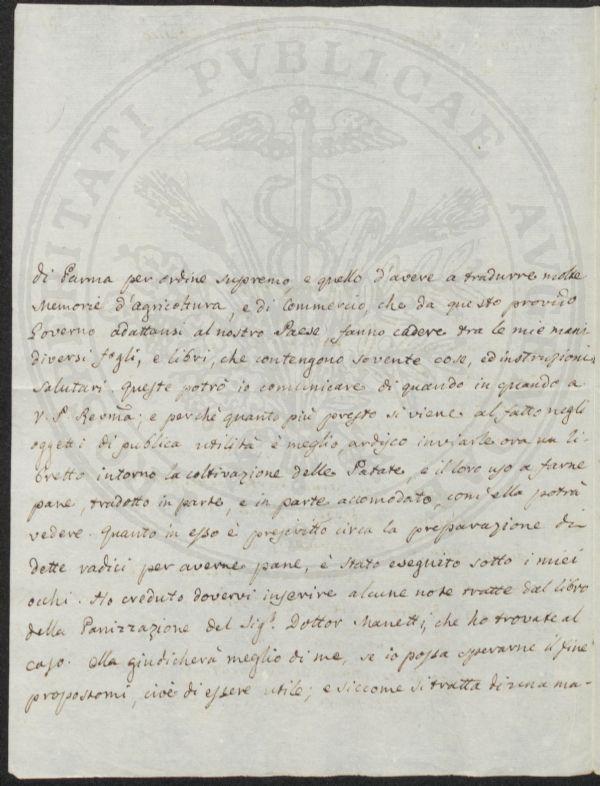 di Parma per ordine supremo e quello d'avere a tradurre molte
Memorie d'agricoltura, e di Commercio, che da questo provido
Governo adattansi al nostro Paese, fanno cadere tra le mie mani
diversi fogli, e libri, che contengono sovente cose, ed instruzioni
salutari queste potrò io comunicare di quando in quando a
V. P. Revma; e perchè quanto più presto si viene al fatto negli
oggetti di publica utilità è meglio ardisco inviarle ora un li-
bretto intorno la coltivazione delle Patate, e il loro uso a farne
pane, tradotto in parte, e in parte accomodato, com' ella potrà
vedere. Quanto in esso è prescritto circa la preparazione di
dette radici per averne pane, è stato eseguito sotto i miei
occhi. Ho creduto dovervi inserire alcune note tratte dal libro
della Panizzazione del Sigr. Dottor Manetti, che ho trovate al
caso. Ella giudicherà meglio di me, se io possa sperarne il fine
propostomi, cioè di essere utile; e siccome si tratta di una ma-
PUBLICAE